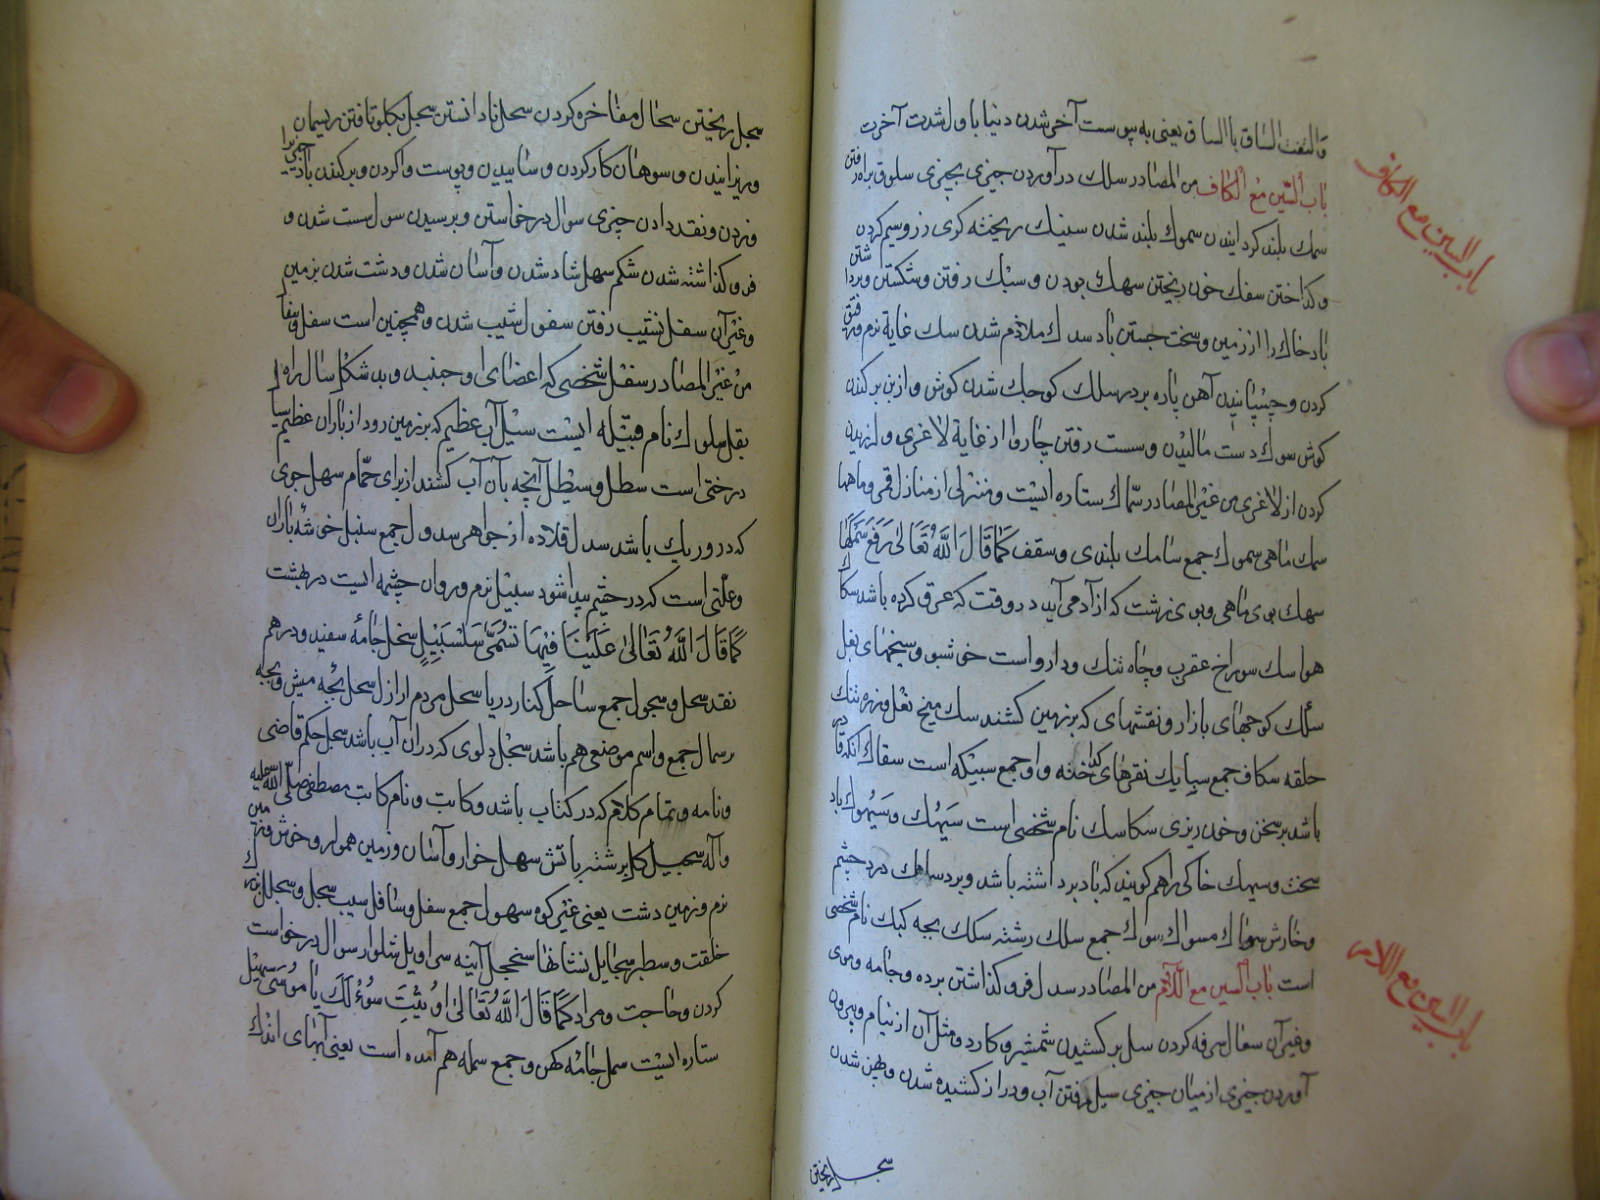 والتفت الساق بالساق یعنی به پیوست آخر شدن دنیا باول شدت آخرت
باب السین مع الکاف من المصادر سلك در آوردن چیزی بچیزی سلوق براه رفتن
سمك بلند کردانیدن سموك بلند شدن سبك ریخته کری زر وسیم کردن
وکداختن سفك خون ریختن سهك بودن و سبك رفتن وشکستن وبرداشتن
باد خاك را از زمین وسخت جستن باد سدك ملازم شدن سك غایة نرم
کردن وچسپانیدن آهن پاره بردر سلك کوچك شدن کوش واز بن برکندن
کوش سوك دست مالیدن وسست رفتن چاروا از غایة لاغری ولرزیدن
کردن از لاغری من غیر المصادر سماك ستاره ایست ومنزلی از منازل قمر وماهیها
سمك ماهی سموك جمع سامك بلندی وسقف کما قال الله تعالی رفع سمکها
سهك بوی ماهی وبوی زشت که از آدمی آید در وقت که عرق کرده باشد سکاك
هوا سك سوراخ عقرب وچاه تنك ودارو است خوشبو ومیخهای نعل
سکك کوچهای بازار ونقشهای که بر زمین کشند سك میخ نعل وزره تنك
حلقه سکاك جمع سبایك نقرهای کداخته واو جمع سبیکه است سفاك آنکه قادر
باشد بر سخن وخون ریزی سکاسك نام شخصی است سیهك وسیهوك باد
سخت وسیهك خاکی را هم کویند که باد برداشته باشد وبرد ساهك درد چشم
وخارش سواك مسواك سوك جمع سلك رشته سلك بچه کبك نام شخصی
است باب السین مع اللام من المصادر سدل فرو کذاشتن پرده وجامه وموی
وغیر آن سعال سرفه کردن سل بر کشیدن شمشیر وکارد ومثل آن از نیام وبیرون
آوردن چیزی از میان چیزی سیل رفتن آب ودراز کشیده شدن وپهن شدن
سجل ریختن
باب السین مع الکاف
باب السین مع اللام
سجل ریختن سجال مفاخره کردن سحل نادانستن سحل یکلو تافتن ریسمان
وریزانیدن وسوهان کار کردن وساییدن وپوست وا کردن وبرکندن باد چیزیرا
وزدن ونقد دادن چیزی سوال درخواستن وپرسیدن سول سست شدن و
فرو کذاشته شدن شکم سهل شاد شدن وآسان شدن ودشت شدن زمین
وغیر آن سفل نشیب رفتن سفول شیب شدن وهمچنین است سفل
من غیر المصادر سغل شخصی که اعضای او جنبد وبد شکل سابل راه
بقل سلول نام قبیله ایست سیل آب عظیم که بر زمین رود از باران عظیم سیال
درختی است سطل وسیطل آنچه بآن آب کشند از برای حمام سهل جوی
که در وریك باشد سدل قلاده از جواهر سدول جمع سنبل خوشه باران
وعلتی است که در چشم پیدا شود سبیل نرم وروان چشمه ایست در بهشت
کما قال الله تعالی عینا فیها تسمی سلسبیل سحل جامه سفید ودرهم
نقد سحل وسحول جمع ساحل کنار دریا سحل مردم ارازل سحل بچه میش وبچه
سمال جمع واسم موضعی هم باشد سجل دلوی که در ان آب باشد سجل حکم قاضی
ونامه وتمام کلام که در کتاب باشد وکاتب ونام کاتب مصطفی صلی الله علیه
وآله سجیل کل برشته باتش سهل خوار وآسان وزمین هموار وخوش ونرم
نرم وزمین دشت یعنی غیر کوه سهول جمع سفل وسافل سیب سجل وسجلل بزرك
خلقت وسطبر سجایل نشانها سجنجل آینه سراویل شلوار سوال درخواست
کردن وحاجت ومراد کما قال الله تعالی اوتیت سؤلك یا موسی سهیل
ستاره ایست سمل جامه کهن وجمع سمله هم آمده است یعنی آبهای اندك